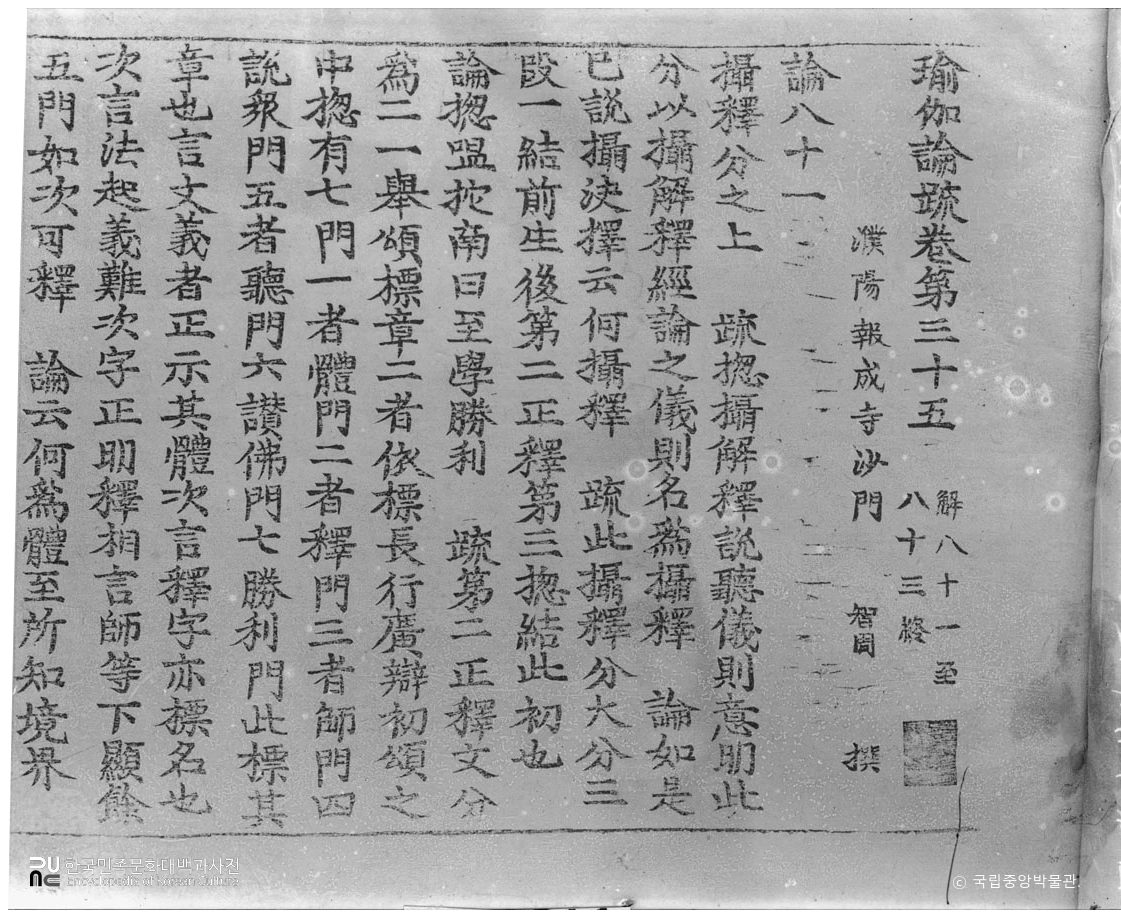 瑜伽論疏卷第三十五 解八十一至
八十三終
濮陽報成寺沙門 智周 撰
論八十一
攝釋分之上 疏揔攝解釋說聽儀則意明此
分以攝解釋經論之儀則名爲攝釋 論如是
已說攝決擇云何攝釋 疏此攝釋分大分三
段一結前生後第二正釋第三揔結此初也
論揔嗢拕南曰至學勝利 疏第二正釋文分
爲二一舉頌標章二者依標長行廣辯初頌之
中揔有七門一者體門二者釋門三者師門四
說衆門五者聽門六讃佛門七勝利門此標其
章也言文義者正示其體次言釋字亦標名也
次言法起義難次字正明釋相言師等下顯餘
五門如次可釋 論云何爲體至所知境界
한국민족문화대백과사전
Encyclopedia of Korean Culture
© 국립중앙박물관.